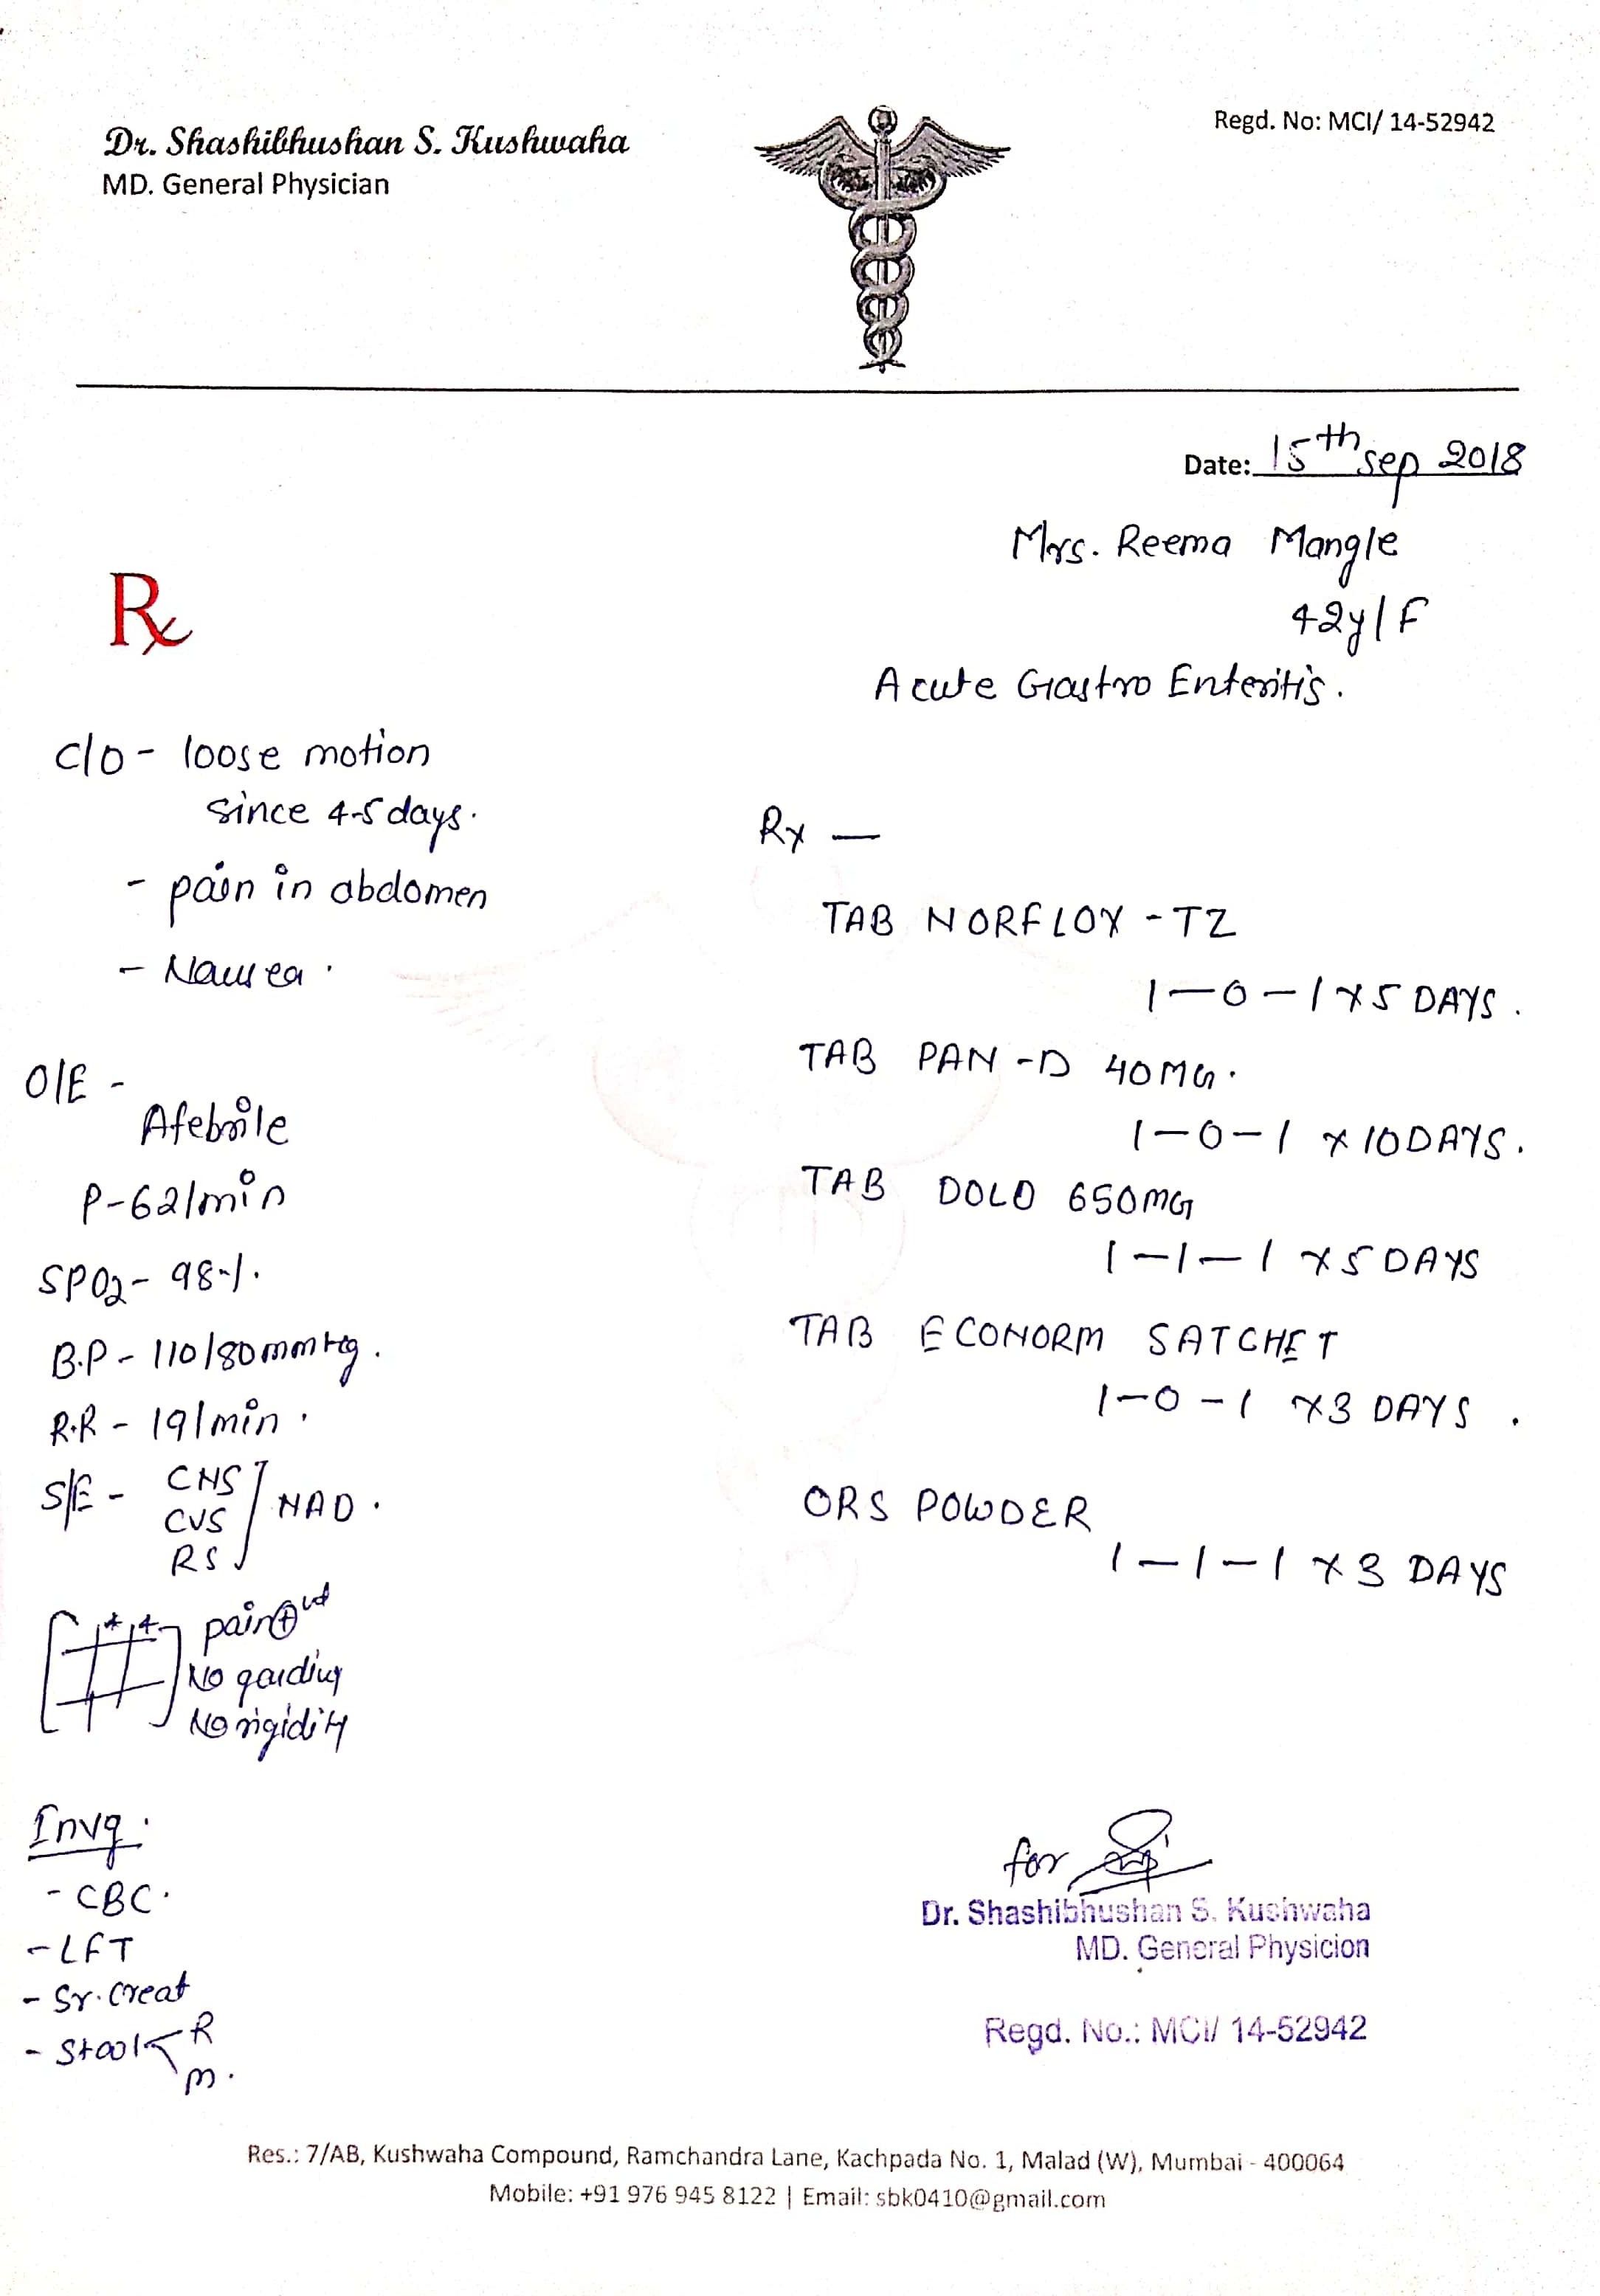 Dr. Shashibhushan S. Kushwaha
MD. General Physician
Regd. No: MCI/ 14-52942
Date: 15th sep 2018
Mrs. Reema Mangle
42y/F
Acute Gastro Enteritis.
Rx
C/O - loose motion
since 4-5 days.
- pain in abdomen
- Nausea.
O/E -
Afebrile
P-62/min
SPO2 - 98%.
B.P - 110/80mmHg.
R.R - 19/min.
S/E - CNS
CVS
RS
NAD.
pain +ve
No garding
No rigidity
Invg.
- CBC.
- LFT
- Sr. Creat
- Stool R
M.
Rx —
TAB NORFLOX - TZ
1—0—1 x 5 DAYS.
TAB PAN-D 40MG.
1—0—1 x 10DAYS.
TAB DOLO 650MG
1—1—1 x 5 DAYS
TAB ECONORM SATCHET
1—0—1 x3 DAYS.
ORS POWDER
1—1—1 x 3 DAYS
for
Dr. Shashibhushan S. Kushwaha
MD. General Physicion
Regd. No.: MCI/ 14-52942
Res.: 7/AB, Kushwaha Compound, Ramchandra Lane, Kachpada No. 1, Malad (W), Mumbai - 400064
Mobile: +91 976 945 8122 | Email: sbk0410@gmail.com